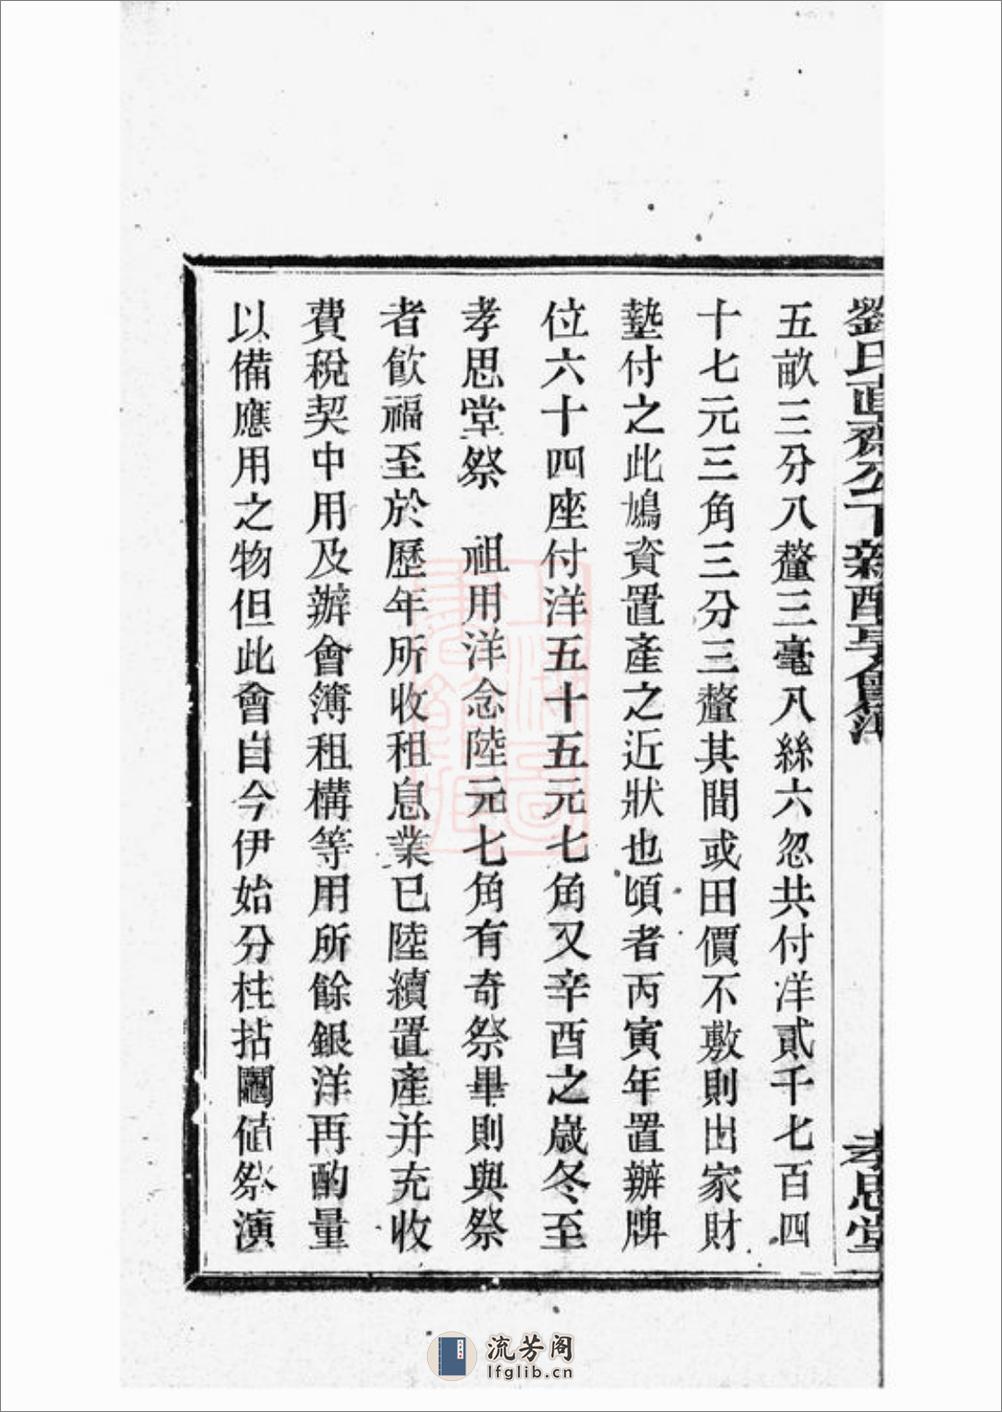 劉氏直齋公下新配享會簿
孝思堂
五畝三分八釐三毫八絲六忽共付洋貳千七百四
十七元三角三分三釐其間或田價不敷則出家財
墊付之此鳩資置產之近狀也頃者丙寅年置辦牌
位六十四座付洋五十五元七角又辛酉之歲冬至
孝思堂祭　祖用洋念陸元七角有奇祭畢則與祭
者飮福至於歷年所收租息業已陸續置產并充收
費稅契中用及辦會簿租構等用所餘銀洋再酌量
以備應用之物但此會自今伊始分柱拈鬮値祭演
流芳阁
lfglib.cn